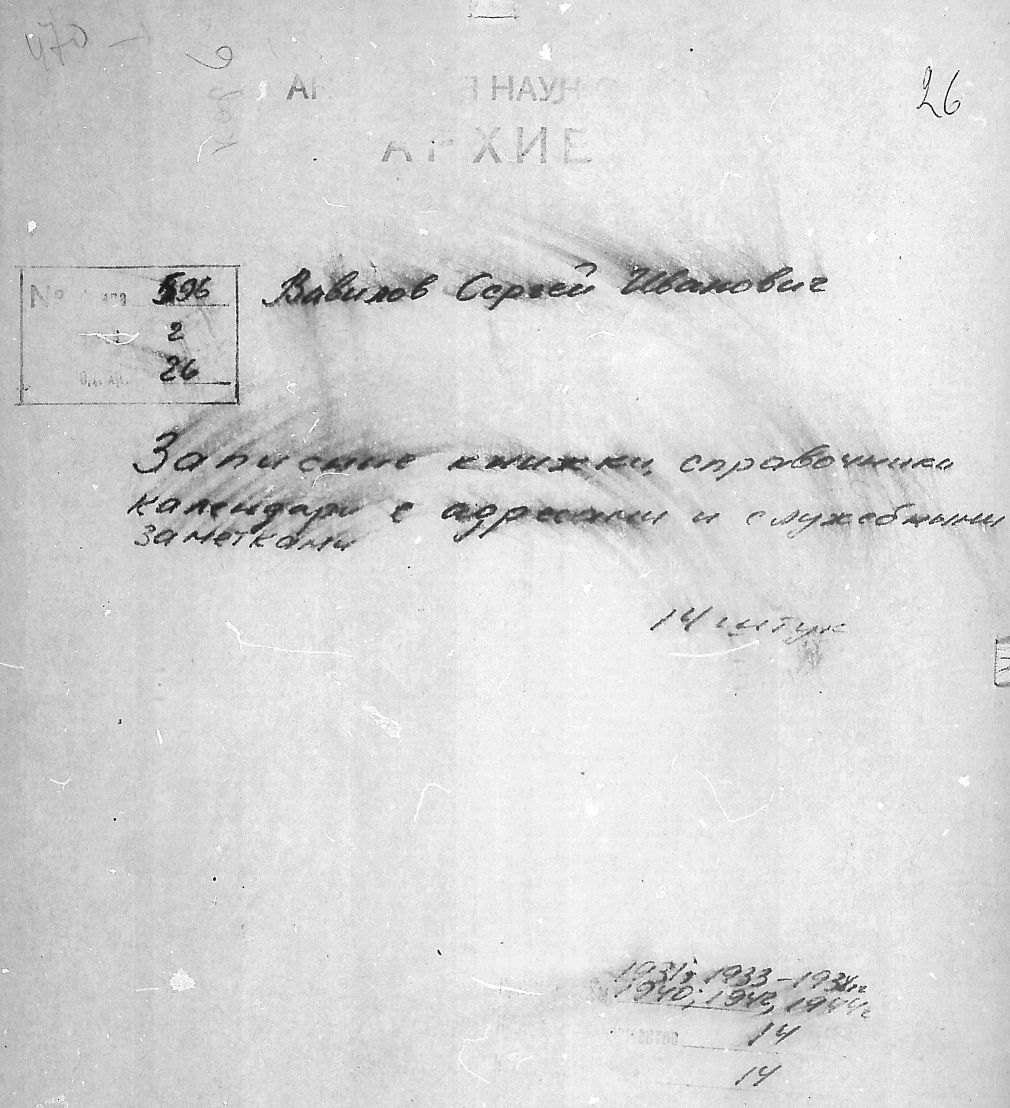 26
НАУ
АРХИВ
№ 596
2
26
Вавилов Сергей Иванович
Записные книжки, справочники
календари с адресами и служебными
заметками
14 штук
1931; 1933-1934гг
1940; 1942, 1944г
14
14